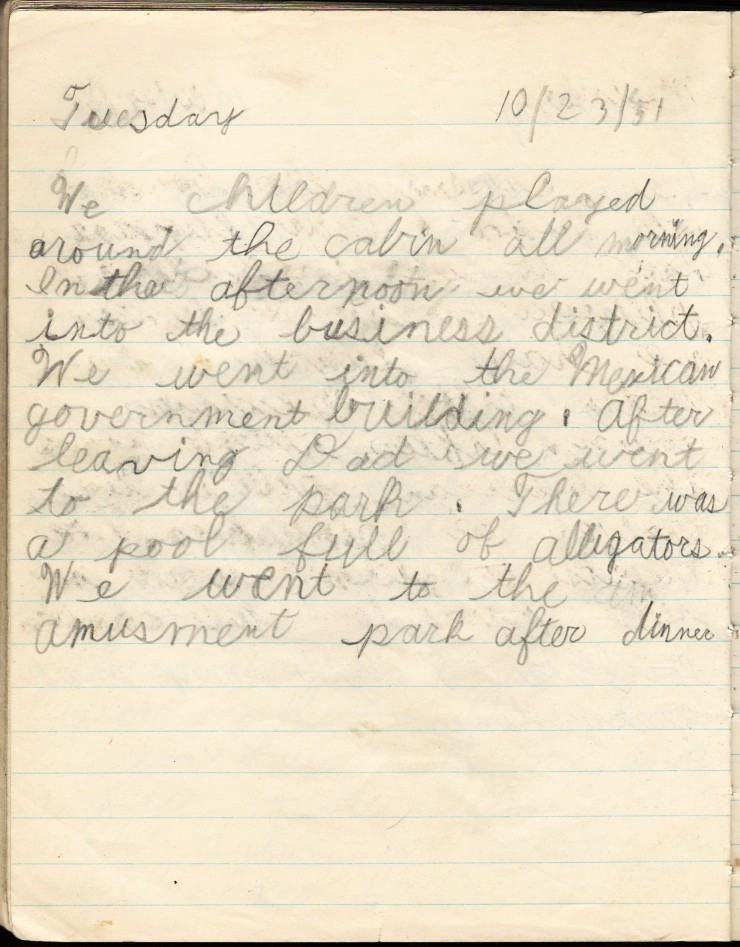 Tuesday 10/23/51
We children played
around the cabin all morning.
In the afternoon we went
into the business district.
We went into the Mexican
government building. After
leaving Dad we went
to the park. There was
a pool full of alligators.
We went to the
amusment park after dinner